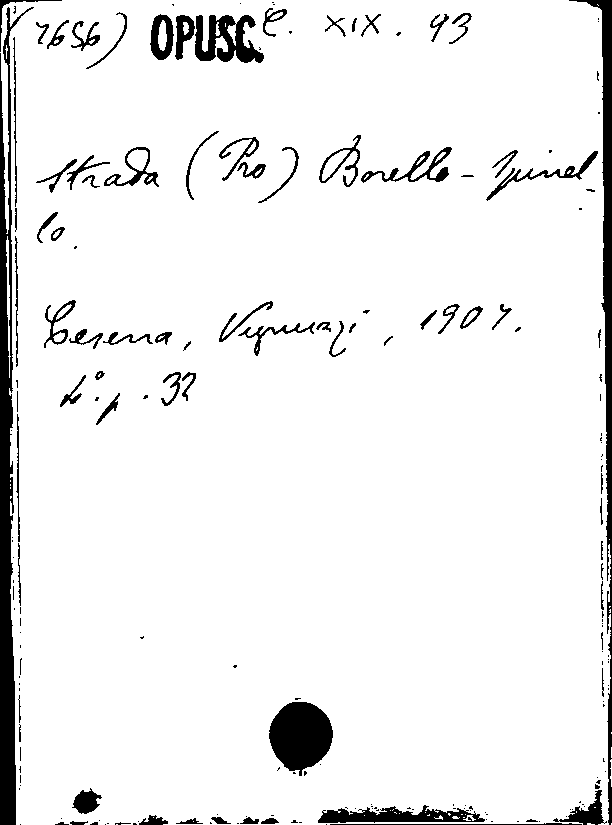 (7656) OPUSC. C. XIX. 93
Strada (Pro) Borello - Spinel-
lo.
Cesena, Vignuzzi, 1907.
4°. p. 32